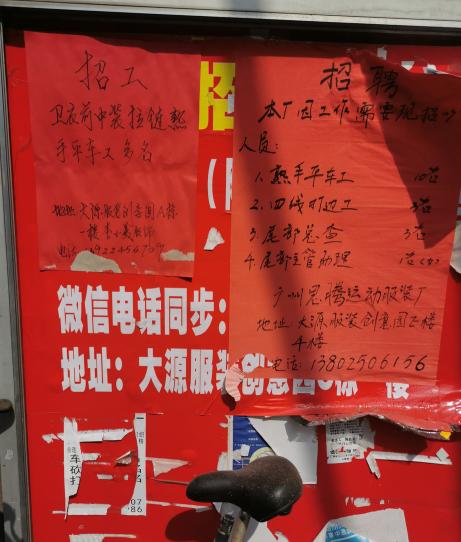 招工
卫衣前中装拉链熟
手平车工多名
地址:大源服装创意园A栋
一楼
电话:
招
招聘
本厂因工作需要现招以下
人员:
1.熟手平车工 10名
2.四线打边工 3名
3.尾部总查 3名
4.尾部主管助理 1名(女)
广州思腾运动服装厂
地址:大源服装创意园E栋
4楼
电话:13802506156
微信电话同步:
地址:大源服装创意园
楼
车砍打
07
786